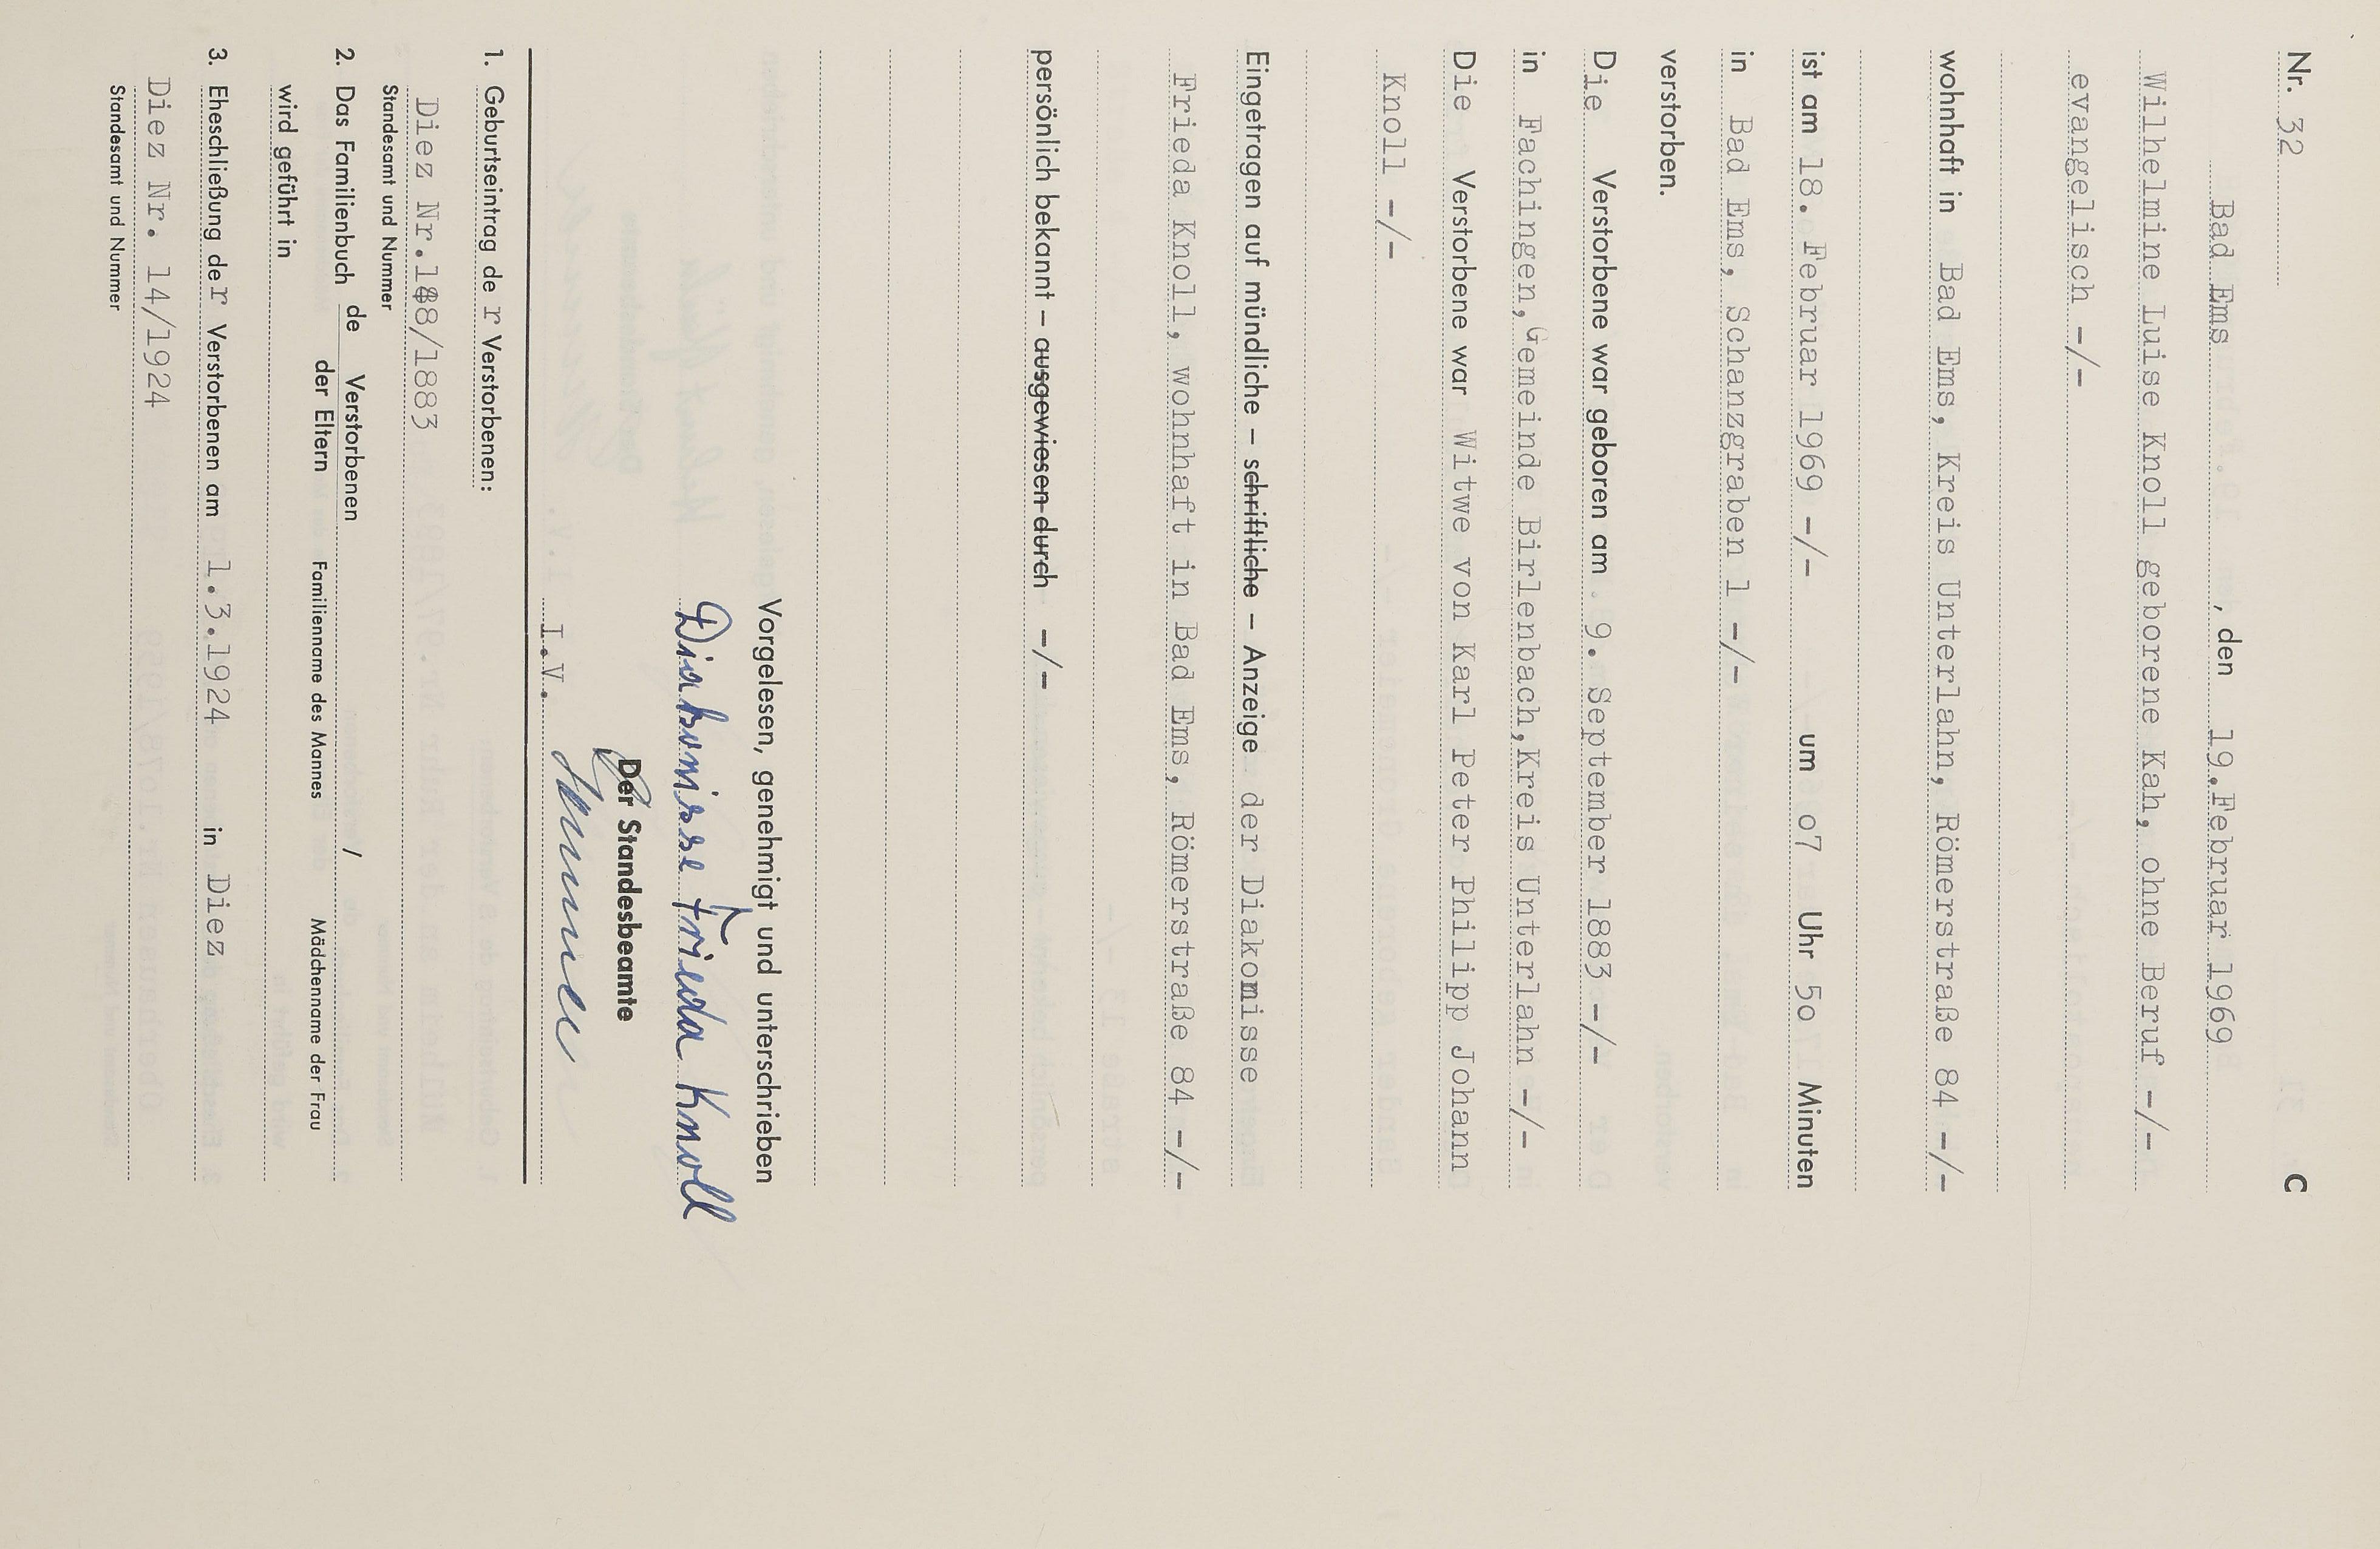 Nr. 32 C
Bad Ems, den 19.Februar 1969
Wilhelmine Luise Knoll geborene Kah, ohne Beruf -/-
evangelisch -/-
wohnhaft in Bad Ems, Kreis Unterlahn, Römerstraße 84 -/-
ist am 18. Februar 1969 -/- um o7 Uhr 5o Minuten
in Bad Ems, Schanzgraben 1 -/-
verstorben.
Die Verstorbene war geboren am 9. September 1883 -/-
in Fachingen, Gemeinde Birlenbach,Kreis Unterlahn -/-
Die Verstorbene war Witwe von Karl Peter Philipp Johann
Knoll -/-
Eingetragen auf mündliche – schriftliche – Anzeige der Diakonisse
Frieda Knoll, wohnhaft in Bad Ems, Römerstraße 84 -/-
persönlich bekannt – ausgewiesen durch -/-
Vorgelesen, genehmigt und unterschrieben
Diakonisse Frieda Knoll
Der Standesbeamte
I.V.
1. Geburtseintrag de r Verstorbenen:
Diez Nr.188/1883
Standesamt und Nummer
2. Das Familienbuch de Verstorbenen /
der Eltern Familienname des Mannes Mädchenname der Frau
wird geführt in
3. Eheschließung der Verstorbenen am 1.3.1924 in Diez
Diez Nr. 14/1924
Standesamt und Nummer